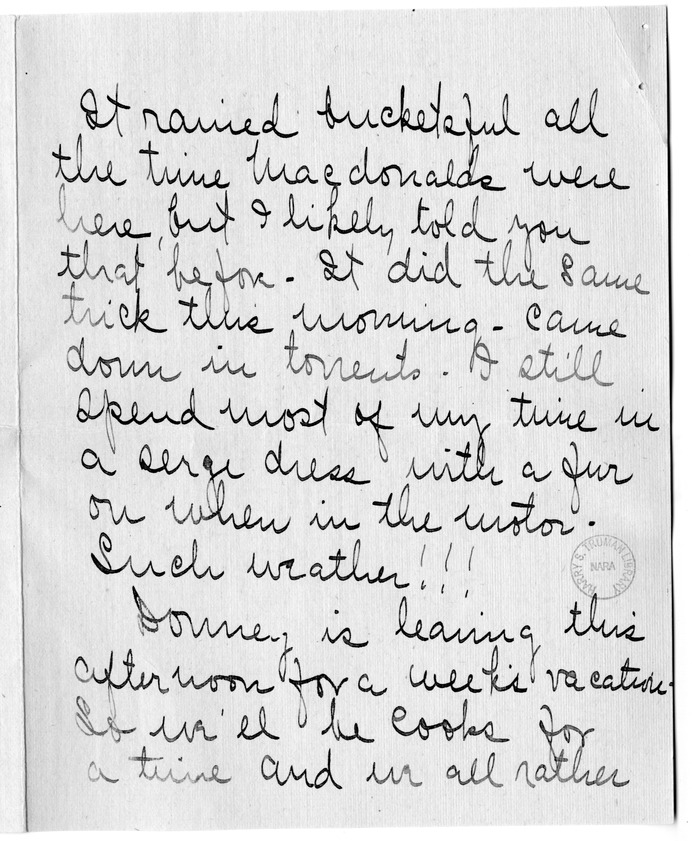 It rained bucketsful all
the time Macdonalds were
here, but I likely told you
that before - It did the same
trick this morning - came
down in torrents. I still
spend most of my time in
a serge dress with a fur
on when in the motor.
Such weather!!!
is leaving this
afternoon for a week's vacation -
So we'el be cooks for
a time and we all rather
HARRY S. TRUMAN LIBRARY
NARA